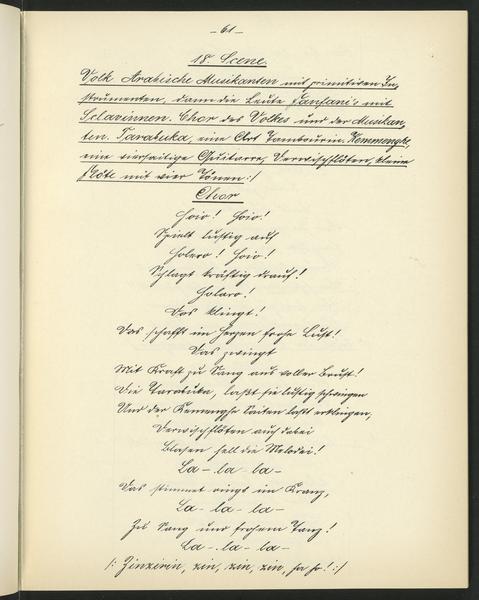 - 61 -
18. Scene.
Volk Arabische Musikanten mit primitiven In-
strumenten, dann die Leute Fanfani's mit
Sclavinnen. Chor des Volkes und der Musikan-
ten. Tarabuka, eine Art Tambourin. Kemmenghe,
eine viersaitige Guitarre, Derwischflöten, kleine
Flöte mit vier Tönen :/
Chor
Hoio! Hoio!
Spielt lustig auf
Holero! Hoio!
Schlagt kräftig drauf!
Holaro!
Das klingt!
Das schafft im Herzen frohe Lust!
Das zwingt
Mit Kraft zu Sang aus voller Brust!
Die Tarabuka, laßt sie lustig schwingen
Und der Kemenghe Saiten laßt erklingen,
Derwischflöten auch dabei
Blasen hell die Melodei!
La - la - la -
Das stimmet rings im Kranz,
La - la - la -
Zu Sang und frohem Tanz!
La - la - la -
/: Zinzirin, zin, zin, zin, ha ha! :/